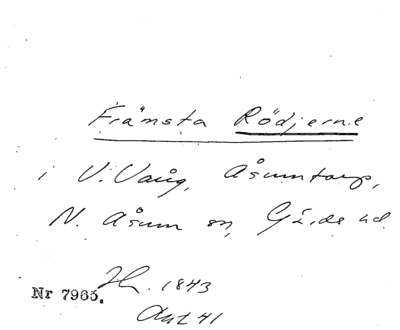 Främsta Rödjerne
i V. Vång, Åsumtorp,
N. Åsum sn, Gärds hd.
1843
Nr 7965.
Akt 41